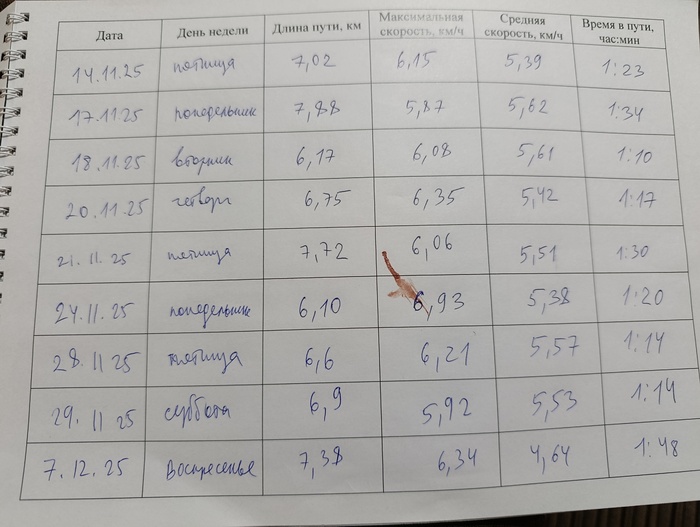 Дата День недели Длина пути, км Максимальная скорость, км/ч Средняя скорость, км/ч Время в пути, час:мин
14.11.25 пятница 7,02 6,15 5,39 1:23
17.11.25 понедельник 7,88 5,87 5,62 1:34
18.11.25 вторник 6,17 6,08 5,61 1:10
20.11.25 четверг 6,75 6,35 5,42 1:17
21.11.25 пятница 7,72 6,06 5,51 1:30
24.11.25 понедельник 6,10 6,93 5,38 1:20
28.11 25 пятница 6,6 6,21 5,57 1:14
29.11 25 суббота 6,9 5,92 5,53 1:14
7.12.25 воскресенье 7,38 6,34 4,64 1:48